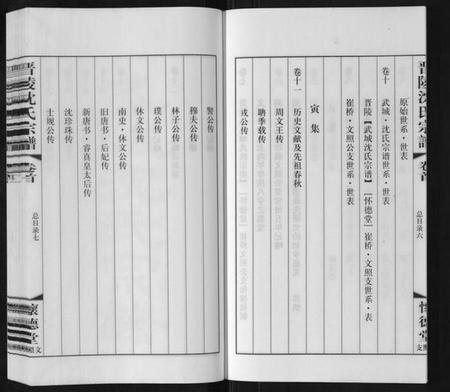 晋陵沈氏宗谱 卷首 总目录六 怀德堂 文照支
原始世系·世表
卷十
武城·沈氏宗谱世系·世表
晋陵【武城沈氏宗谱】[怀德堂]崔桥·文照世系·表
崔桥·文照公支世系·世表
寅集
卷十一
历史文献及先祖春秋
周文王传
聃季载传
戎公传
鄷公传
穆夫公传
林子公传
璞公传
休文公传
南史·休文公传
旧唐书·后妃传
新唐书·睿真皇太后传
沈珍珠传
士规公传
晋陵沈氏宗谱 卷首 总目录七 怀德堂